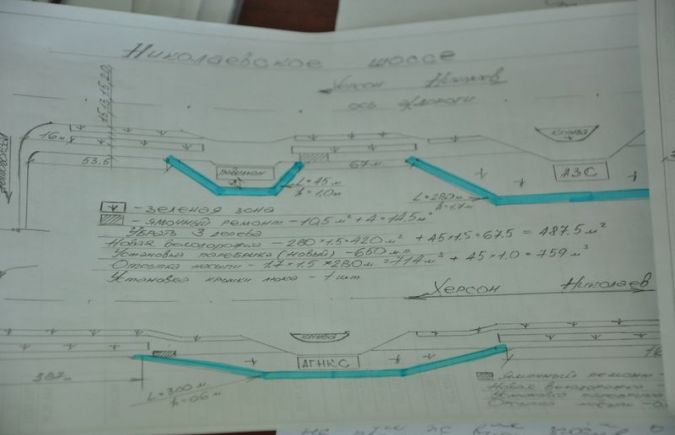 Николаевское шоссе
Херсон Николаев
ось дороги
16 м
53.5
67 м
L=45 м
h=1.0м
L=280м
h=1.7м
АЗС
- зеленая зона
- ямочный ремонт - 10,5 м² + 4 = 14.5 м²
Убрать 3 дерева
Новая велодорожка - 280*1.5=420м² + 45*1.5=67.5 = 487.5 м²
Установка поребрика (новый) - 650 м.п.
Отсыпка насыпи - 1.7*1.5*280м = 714м³ + 45*1.0 = 759 м³
Установка крышки люка - 1 шт
Херсон Николаев
АГНКС
387м
L=300 м
h=0.6 м
Ямочный ремонт
Новая велодорожка -
Установка поребрика